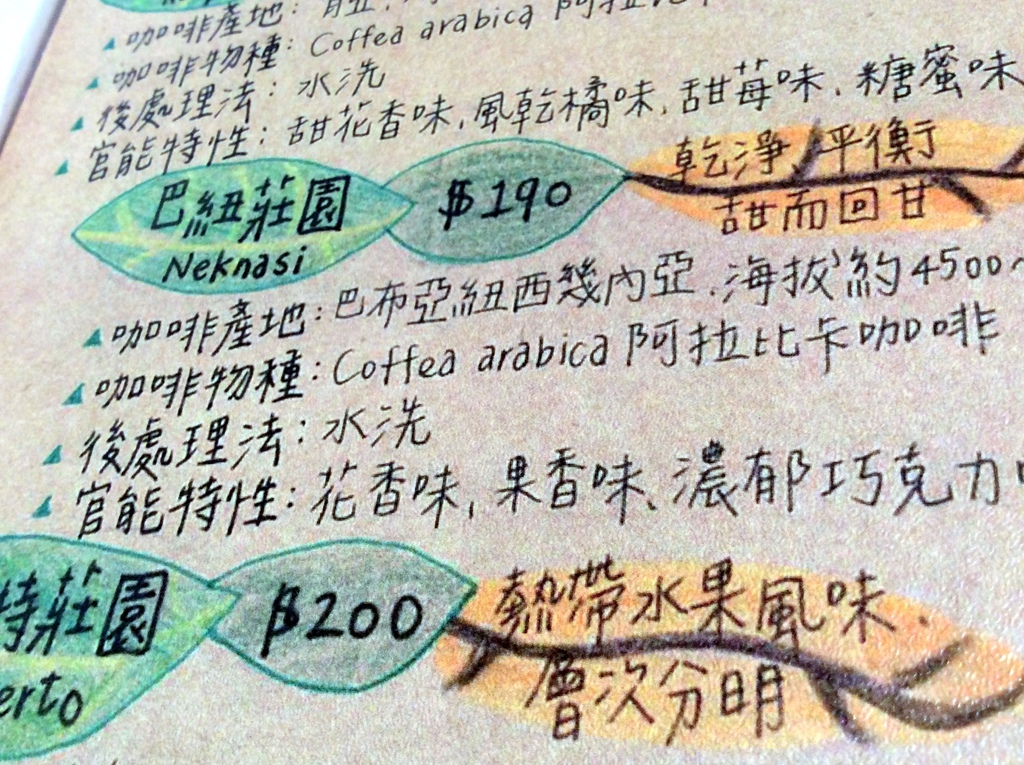 咖啡產地:
咖啡物種: Coffea arabica 阿拉比
後處理法: 水洗
官能特性: 甜花香味, 風乾橘味, 甜莓味, 糖蜜味
巴紐莊園
Neknasi
$190
乾淨 平衡
甜而回甘
咖啡產地: 巴布亞紐西幾內亞, 海拔約4500~
咖啡物種: Coffea arabica 阿拉比卡咖啡
後處理法: 水洗
官能特性: 花香味, 果香味、濃郁巧克力
特莊園
erto
$200
熱帶水果風味.
層次分明